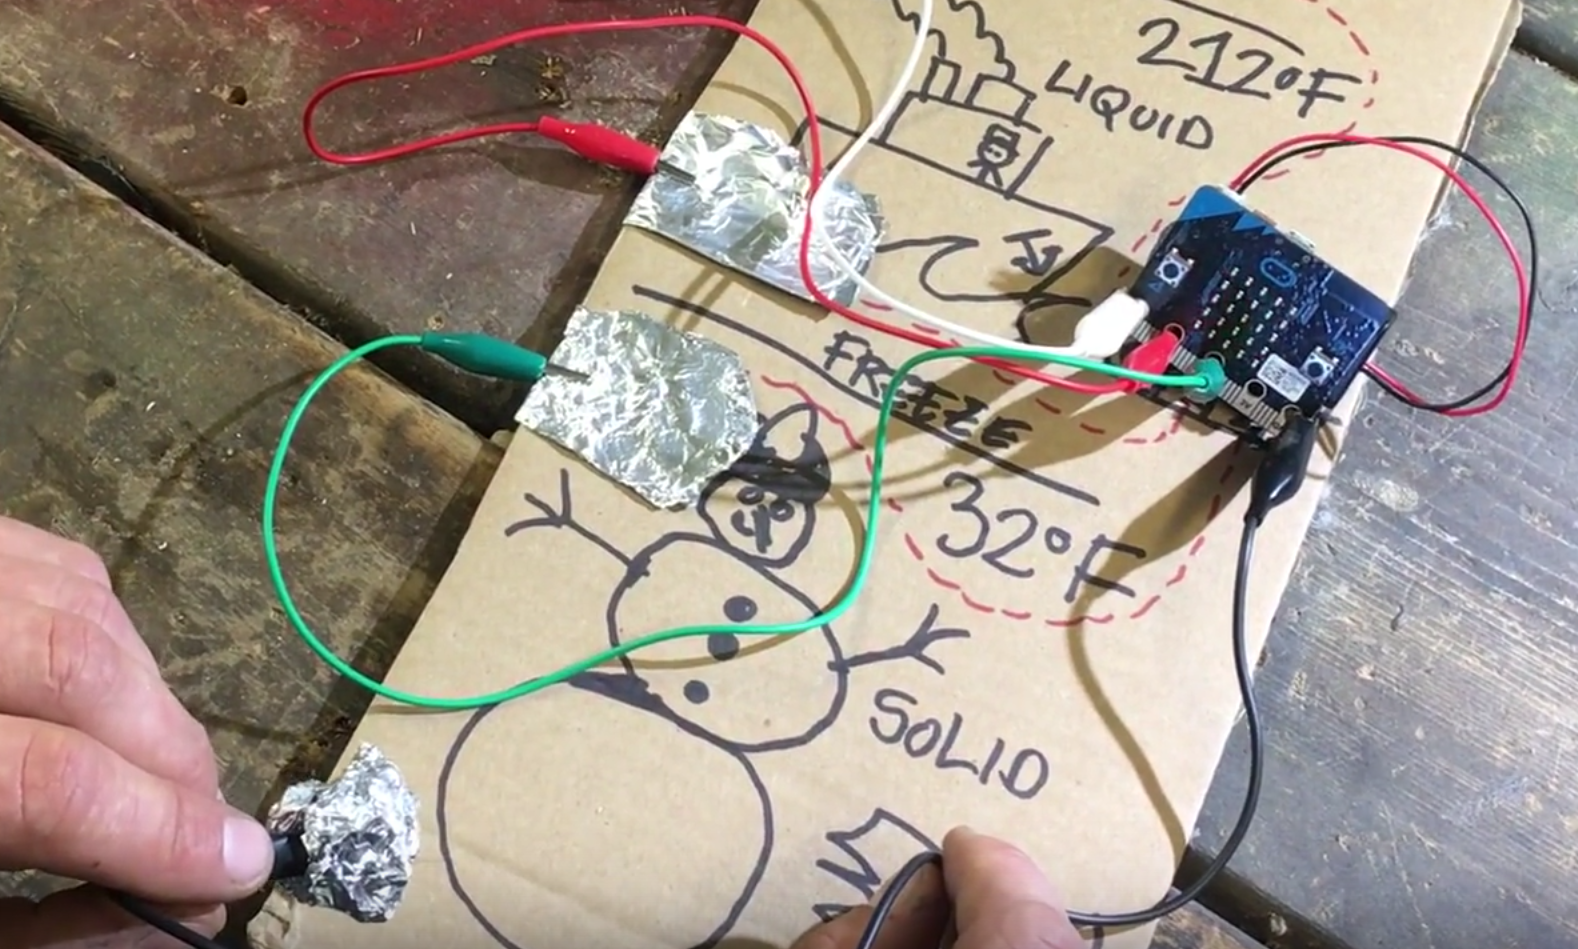 212°F
LIQUID
FREEZE
32°F
SOLID